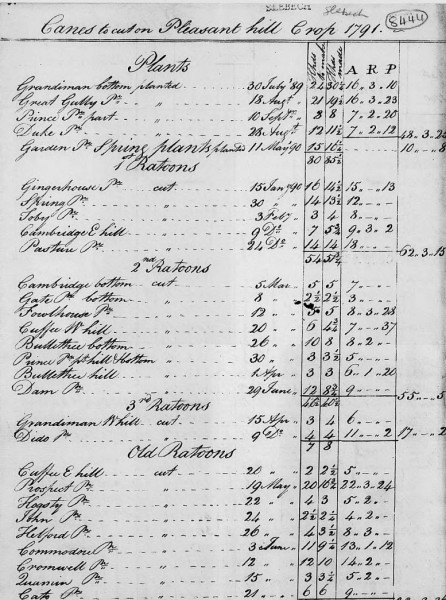 SLEBECH Slebech 8444
Canes to cut on Pleasant hill Crop 1791.
Hhds to make Hhds made A R P
Plants
Grandiman bottom planted 30 July 89 24 30½ 16 " 3 " 10
Great Gully Pce " 18 Augt " 21 19½ 16 " 3 " 23
Prince Pce part " 10 Septr " 8 8 7 " 2 " 20
Duke Pce " 28 Augt " 12 11½ 7 " 2 " 12 48 " 3 " 25
Garden Pce Spring plants planted 11 May 90 15 16½ 10 " " 8
80 85½
1st Ratoons
Gingerhouse Pce cut 15 Jany 90 16 14½ 15 " " 13
Spring Pce " 30 " " 14 13½ 12
Toby Pce " 3 Feby " 3 4 8
Cambridge E hill " 9 Do " 7 5¾ 9 " 3 " 2
Pasture Pce " 24 Do " 14 14 18 62 " 3 " 15
54
2nd Ratoons
Cambridge bottom cut 5 Mar " 5 5 7
Gate Pce bottom " 8 " " 2½ 2½ 3
Fowlhouse Pce " 12 " " 5 5 8 " 3 " 28
Cuffee W hill " 20 " " 6 4¾ 7 " " 37
Bullettree bottom " 26 " " 10 8 8 " 2 "
Prince Pce pt hill & bottom " 30 " " 3 3½ 5
Bullettree hill " 1 Apr " 3 3 6 " 1 " 20
Dam Pce " 29 June " 12 8¾ 9 55 " " 5
46½ 40½
3rd Ratoons
Grandiman W hill " 15 Apr " 3 4 6
Dido Pce " 9 Do " 4 4 11 " " 2 17 " " 2
7 8
Old Ratoons
Cuffee E hill cut 20 " " 2 2½ 5
Prospect Pce " 19 May " 20 16¾ 22 " 3 " 24
Hogsty Pce " 22 " " 4 3 5 " 2 "
John Pce " 24 " " 2½ 2¼ 4 " 2 "
Helford Pce " 26 " " 4 3½ 8 " 3 "
Commodore Pce " 3 June " 11 9½ 13 " 1 " 12
Cromwell Pce " 12 " " 12 10 14 " 2 "
Quamin Pce " 15 " " 3 3½ 5 " 2 "
Cato Pce " 21 " " 6 6 9